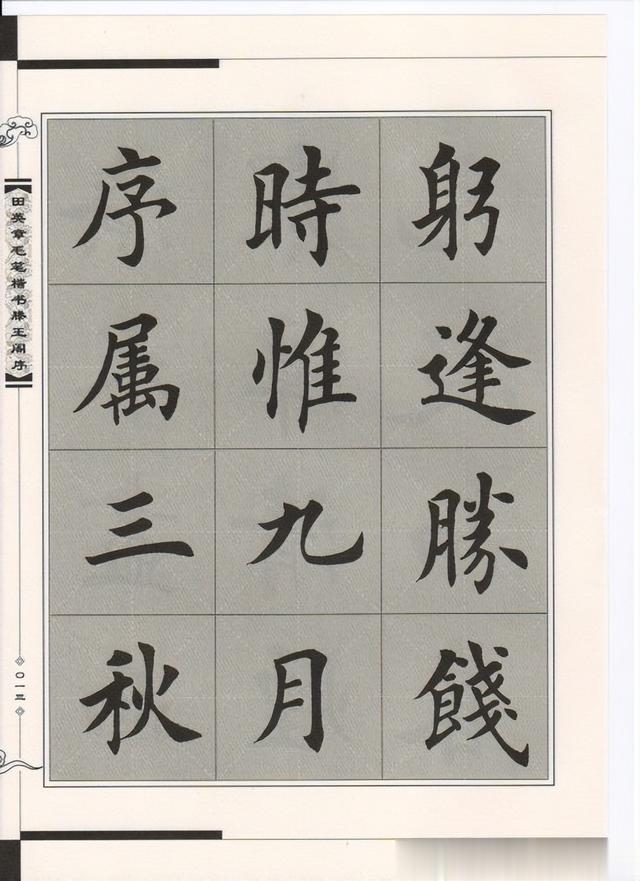 躬逢勝餞
時惟九月
序属三秋
田英章毛笔楷书滕王阁序
〇一三